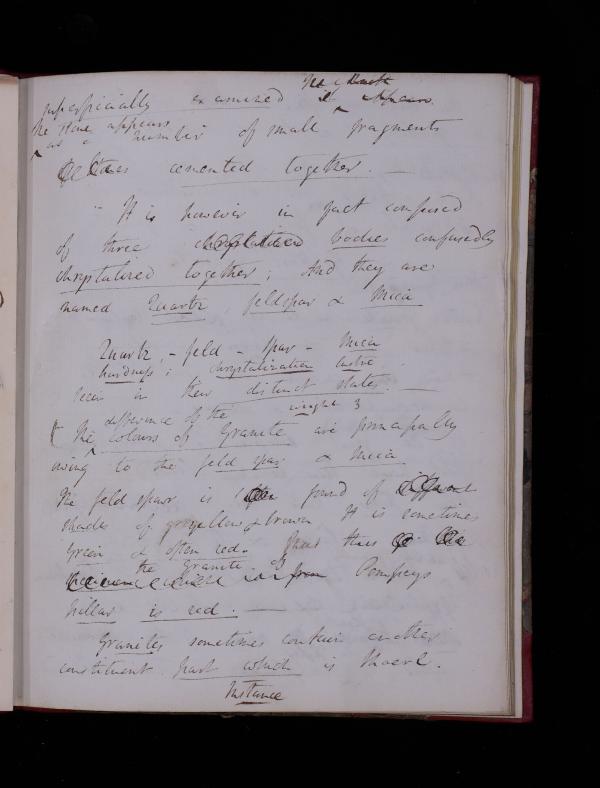 superficially examined it appears
The stone appears
as a number of small fragments
cemented together. —
It is however in fact confused
of three bodies confusedly
chrystalized together; And they are
named Quartz, feldspar & Mica
Quartz, – feld – spar – Mica
hardness; chrystalization lustre
seen in their distinct states. —
difference of the weight 3
The colours of Granite are principally
owing to the feld spar & Mica
The feld spar is found of different
shades of & brown It is sometimes
Green & often red. thus
the Granite of from Pompeys
pillar is red. —
Granites sometimes contain another
constituent part which is Shoerl.
Instance